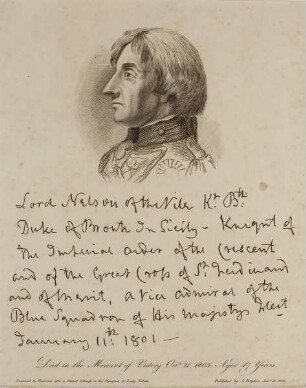 Lord Nelson of the Nile Kt. Bth.
Duke of Bronte In Sicily - Knight of
The Imperial Order of the Crescent
and of the Great Cross of St. Ferdinand
and of Merit, a Vice admiral of the
Blue Squadron of His Majestys Fleet
January 11th. 1801 -
Died in the Moment of Victory Octr. 21, 1805. Aged 47 Years.